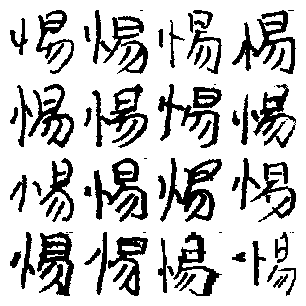 惕惕惕惕
惕惕惕惕
惕惕惕惕
惕惕惕惕